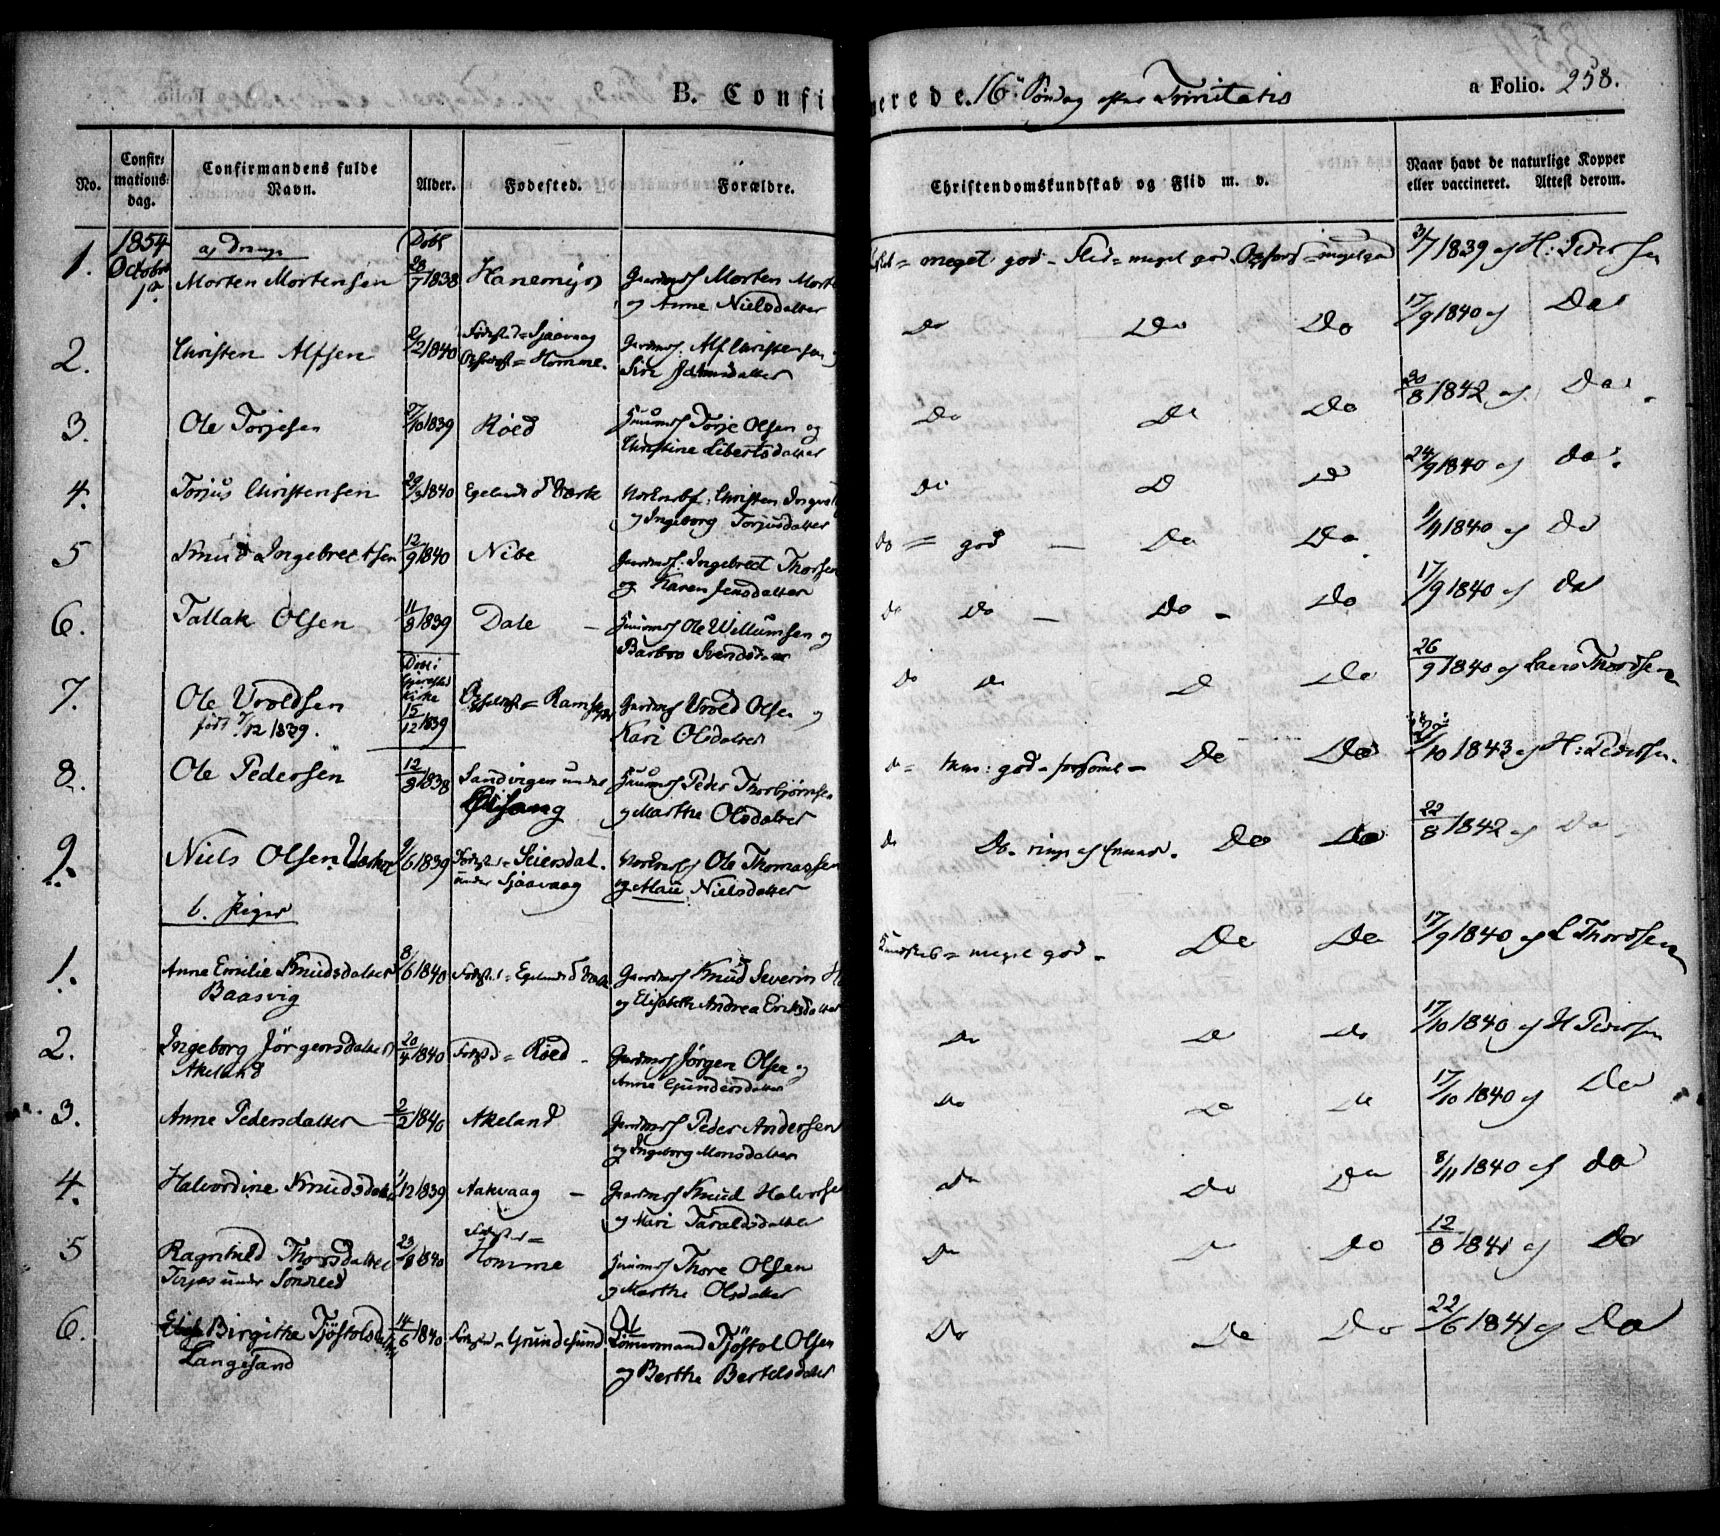 B. Confirmerede. 16 Søndag efter Trinitatis a Folio. 258.
No. Confirmations dag. Confirmandens fulde Navn. Alder. Fødested. Forældre. Christendomskundskab og Flid m. v. Naar havt de naturlige Kopper eller vaccineret. Attest derom.
1854 a, Drenge Døbt
1. Octobr 1ste Morten Mortensen 28/7 1838 Hanemyr Gaardmd Morten Mort
og Anne Nielsdatter
= meget god - Flid = meget god. Opførs = meget god 3/7 1839 af H: Pedersen
2. Christen Alfsen 2/2 1840 Fødested = Sjaavaag
Opfostret = Homme. Gaardmd: Alf Christensen
Siri
Do Do Do 17/9 1840 af Do
3. Ole Torjesen 27/10 1839 Røed Huusmd Torje Olsen og
Christine Libertsdatter
Do Do Do 20/8 1842 af Do.
4. Torjus Christensen 29/3 1840 Egelands Værk Christen
og Ingeborg Torjusdatter
Do D Do 24/9 1840 af Do.
5 Knud Ingebrectsen 12/9 1840 Nibe Gaardmd: Ingebrect Thorsen
og Karen Jensdatter
Do = god - Do Do 1/11 1840 af Do
6. Tallak Olsen 11/8 1839 Dale - Huusmd Ole Willumsen og
Barbro Svendsd
Do Do - Do - Do 17/9 1840 af Do
7. Ole Uroldsen
født 7/12 1839.
Døbt i
Kirke
15/12 1839
Gaardmd Urold Olsen og
Kari Olsdatter
Do Do D Do 26/9 1840 af Lars Thordsen
8. Ole Pedersen 12/8 1838 Sandvigen under
Huusmd Peder Thorbjørnsen
og Marthe Olsdatter
god - Do Do /10 1843 af H: Pedersen.
9. Niels Olsen 9/6 1839 Seiersdal.
under Sjaavaag Ole Thomassen
og Maii Nielsdatter
Do Do. Do Do 22/8 1842 af Do
b. Piger
1. Anne Emilie Knudsdatter
Baasvig
8/6 1840 Fødest = Egelands Værk Gaardmd Knud Severin H
og Elisabeth Andrea Eriksdatter
Kundskab = meget god - Do Do 17/9 1840 af L Thordsen
2. Ingeborg Jörgensdatter
Akeland
20/4 1840 Fødest = Røed - Gaardmd Jørgen Olsen og
Anne Gundersdatter
Do Do Do 17/10 1840 af H Pedersen
3. Anne Pedersdatter 2/2 1840 Akeland Gaardmd Peder Andersen
og Ingeborg Monsdatter
Do Do Do 17/10 1840 af Do
4. Halvordine Knudsdatter 1/12 1839 Aakvaag - Gaardmd Knud Halvorse
og Mari Taraldsdatter
Do Do Do 8/11 1840 af Do
5 Ragnhild Thorsdatter
under Sönneled
23/8 1840 Fødest =
Homme Huusmd Thore Olsen
og Marthe Olsdatter
Do D Do 12/8 1841 af Do
6. Birgithe Tjöstolsdatter
Langesand
14/6 1840 Fødest = Grundesund Tömmermand Tjöstol Olsen
og Berthe Bertelsdatter
Do Do Do 22/6 1841 af Do